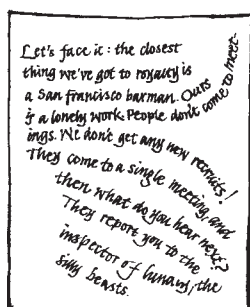 Let's face it : the closest
thing we've got to royalty is
a San Francisco barman. Ours
is a lonely work. People don't come to meet-
ings. We don't get any new recruits!
They come to a single meeting, and
then what do you hear next?
They report you to the
inspector of lunacy, the
silly beasts.